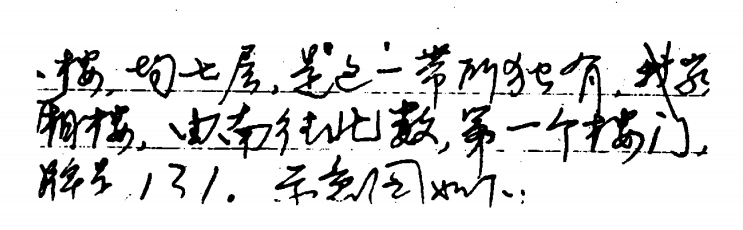 、楼，均七层，是这一带所独有，我家
厢楼，由南往北数，第一个楼门，
牌号131。示意图如下：